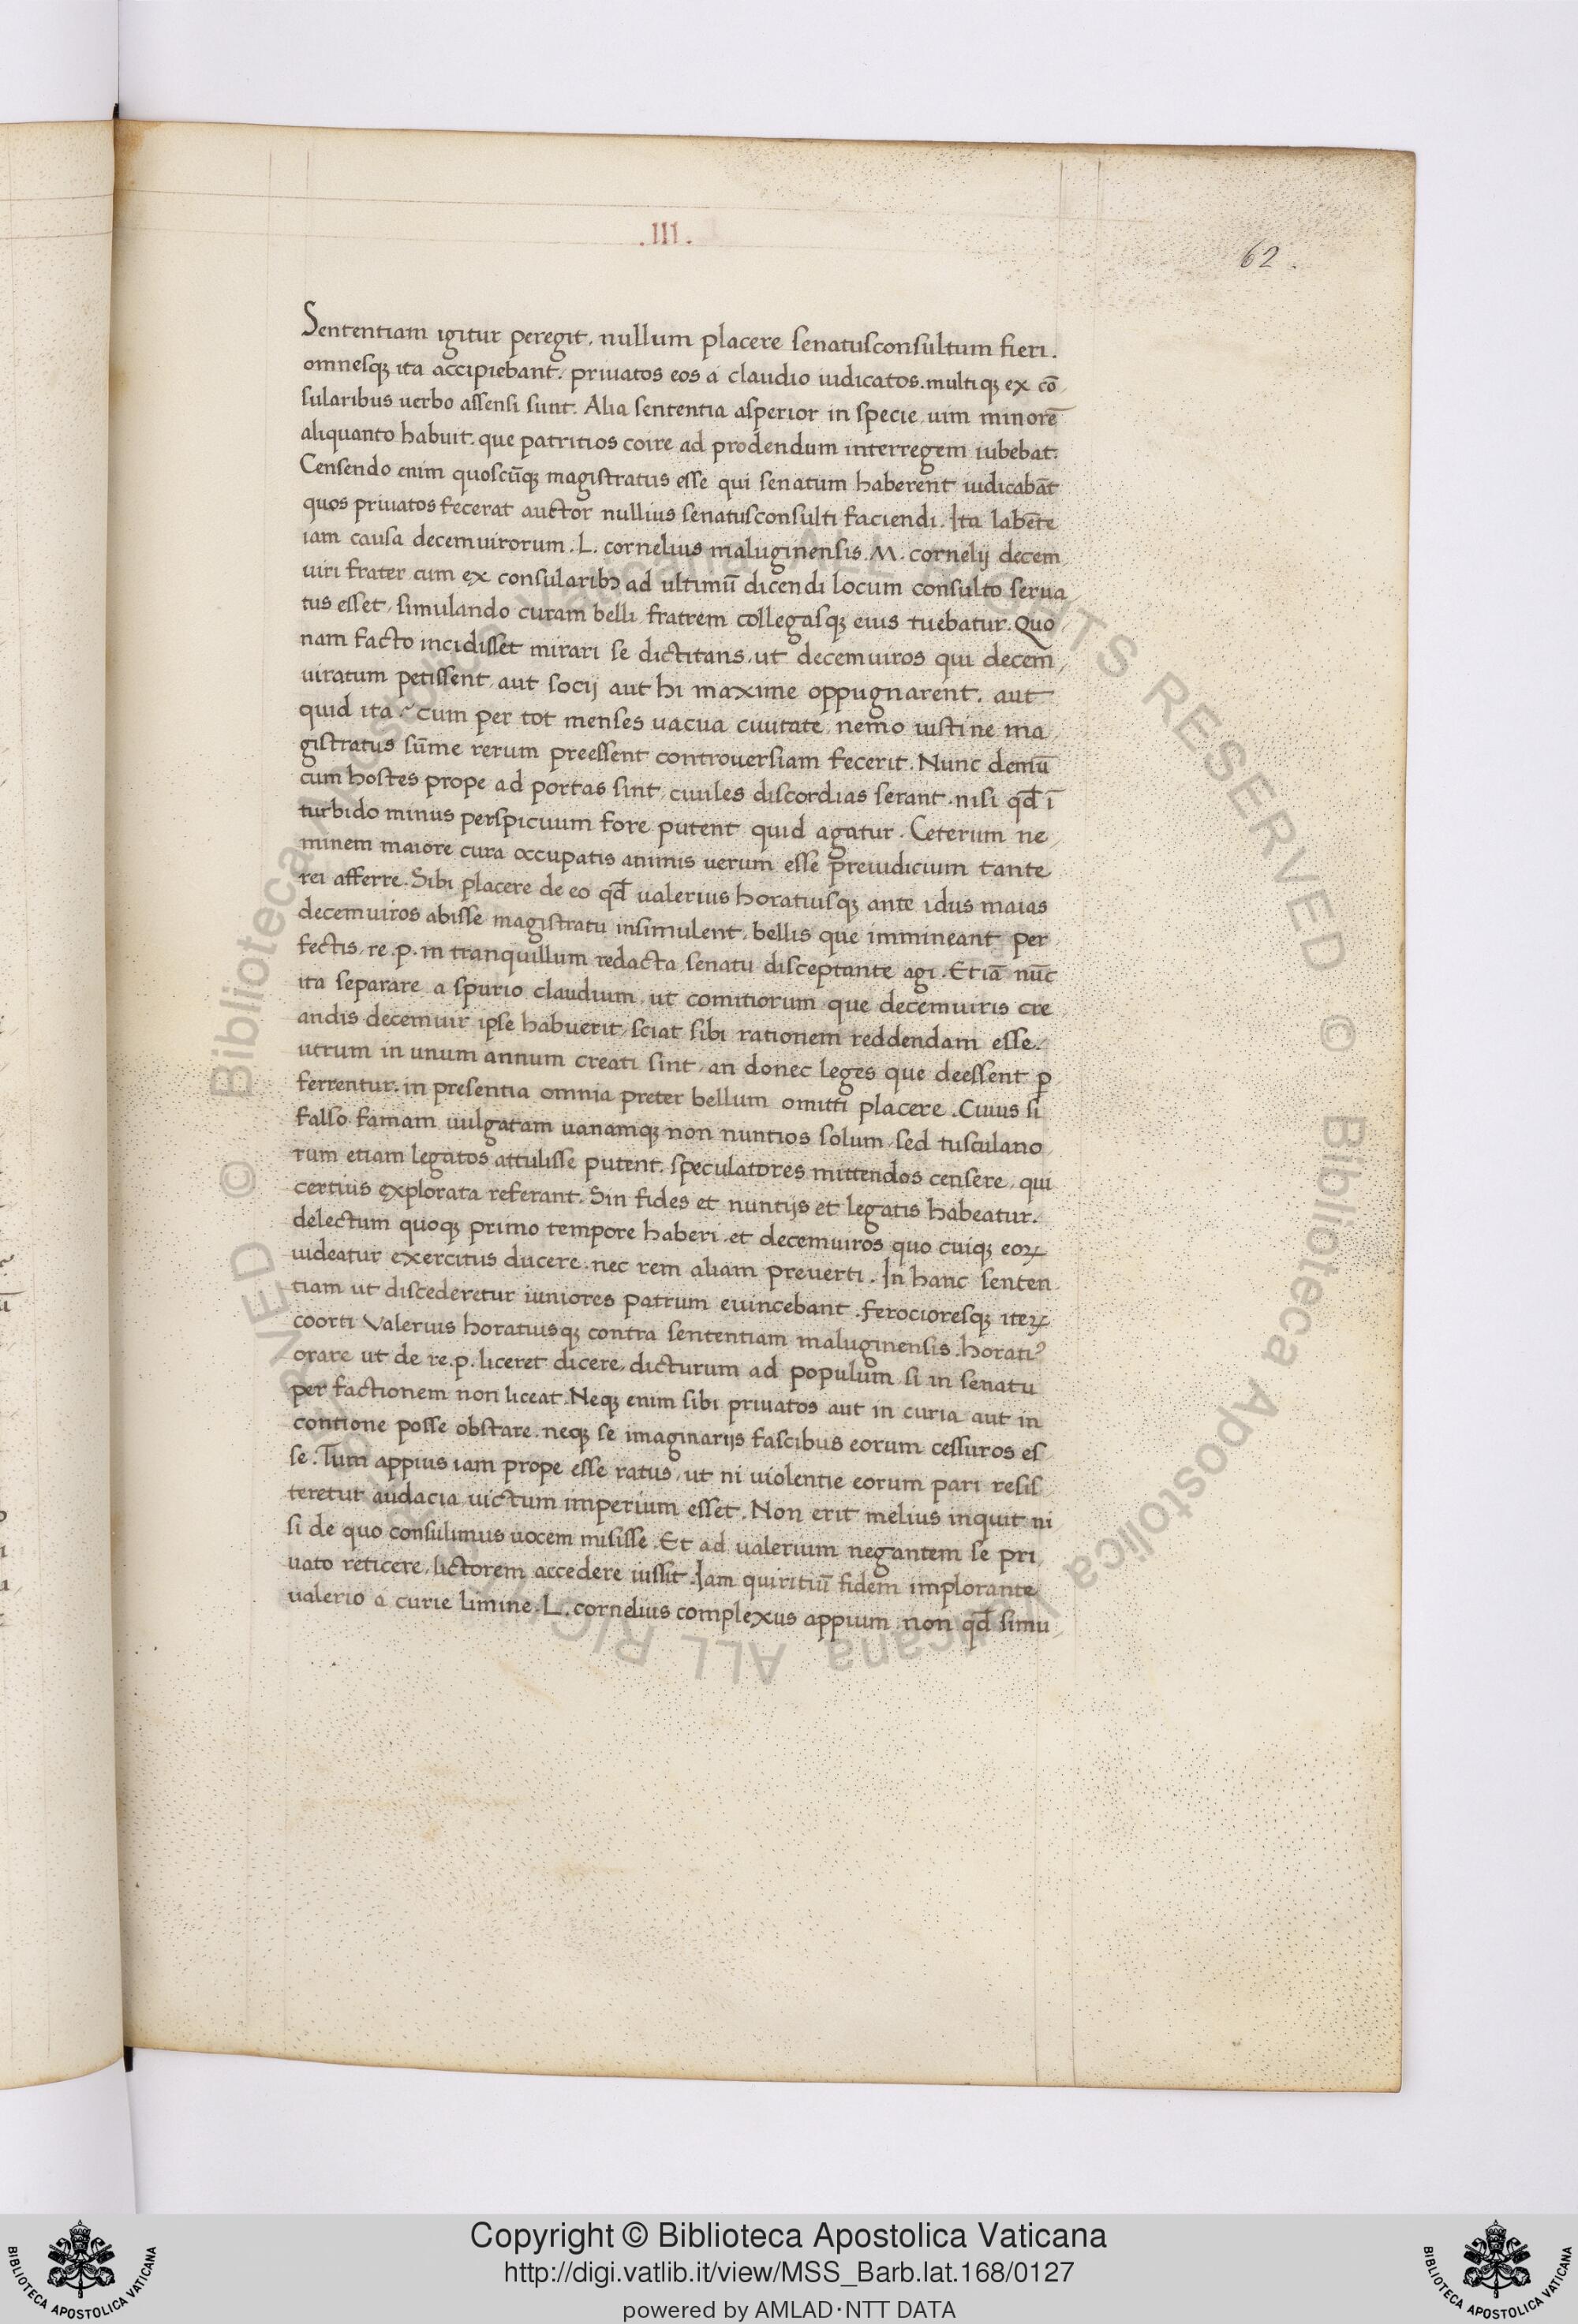 .III.
62.
Sententiam igitur peregit, nullum placere senatusconsultum fieri.
omnesqꝫ ita accipiebant. priuatos eos a claudio iudicatos. multiqꝫ ex cō
sularibus uerbo assensi sunt. Alia sententia asperior in specie, uim minorē
aliquanto habuit. que patritios coire ad prodendum interregem iubebat.
Censendo enim quoscūqꝫ magistratus esse qui senatum haberent iudicabāt
quos priuatos fecerat auctor nullius senatusconsulti faciendi. Ita labēte
iam causa decemuirorum. L. cornelius maluginensis. M. cornelij decem
uiri frater cum ex consularibꝫ ad ultimū dicendi locum consulto serua
tus esset, simulando curam belli, fratrem collegasqꝫ eius tuebatur. Quo
nam facto incidisset mirari se dictitans, ut decemuiros qui decem
uiratum petissent, aut socij aut hi maxime oppugnarent. aut
quid ita? cum per tot menses uacua ciuitate, nemo iusti ne ma
gistratus sūme rerum preessent controuersiam fecerit. Nunc demū
cum hostes prope ad portas sint, ciuiles discordias serant. nisi qđ ī
turbido minus perspicuum fore putent quid agatur. Ceterum ne
minem maiore cura occupatis animis uerum esse preiudicium tante
rei afferre. Sibi placere de eo qđ ualerius horatiusqꝫ ante idus maias
decemuiros abisse magistratu insimulent, bellis que immineant per
fectis, re.p. in tranquillum redacta, senatu disceptante agi. Etiā nūc
ita separare a spurio claudium, ut comitiorum que decemuiris cre
andis decemuir ipse habuerit, sciat sibi rationem reddendam esse.
utrum in unum annum creati sint, an donec leges que deessent ꝑ
ferrentur. in presentia omnia preter bellum omitti placere. Cuius si
falso famam uulgatam uanamqꝫ non nuntios solum, sed tusculano
rum etiam legatos attulisse putent, speculatores mittendos censere, qui
certius explorata referant. Sin fides et nuntijs et legatis habeatur.
delectum quoqꝫ primo tempore haberi, et decemuiros quo cuiqꝫ eoꝝ
uideatur exercitus ducere. nec rem aliam preuerti. In hanc senten
tiam ut discederetur iuniores patrum euincebant. ferocioresqꝫ iteꝝ
coorti Valerius horatiusqꝫ contra sententiam maluginensis. horatiꝰ
orare ut de re.p. liceret dicere, dicturum ad populum si in senatu
per factionem non liceat. Neqꝫ enim sibi priuatos aut in curia aut in
contione posse obstare. neqꝫ se imaginarijs fascibus eorum cessuros es
se. Tum appius iam prope esse ratus, ut ni uiolentie eorum pari resis
teretur audacia, uictum imperium esset. Non erit melius inquit ni
si de quo consulimus uocem misisse. Et ad ualerium negantem se pri
uato reticere, lictorem accedere iussit. Iam quiritiū fidem implorante
ualerio a curie limine. L. cornelius complexus appium non qđ simu
Copyright © Biblioteca Apostolica Vaticana
http://digi.vatlib.it/view/MSS_Barb.lat.168/0127
powered by AMLAD·NTT DATA
BIBLIOTECA APOSTOLICA VATICANA
BIBLIOTECA APOSTOLICA VATICANA